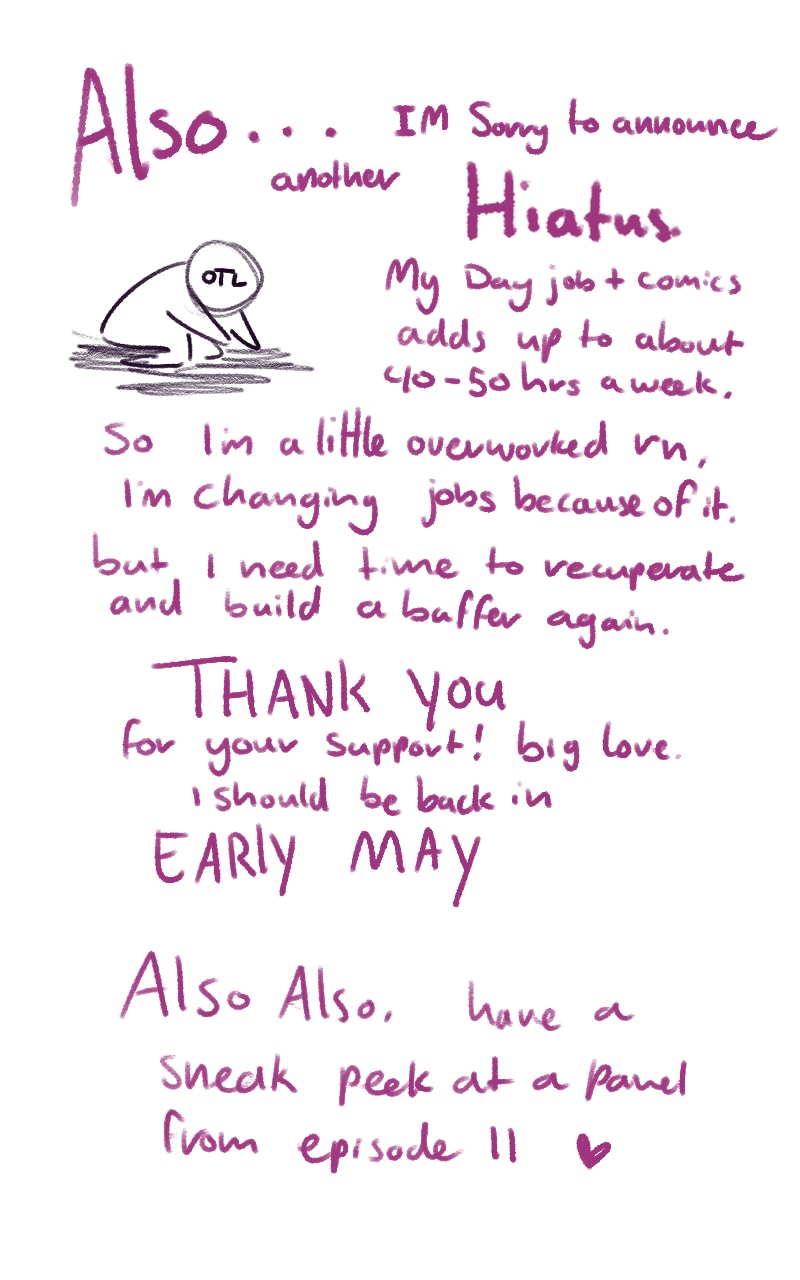 Also... IM Sorry to announce
another
Hiatus.
OTL
My Day job + comics
adds up to about
40-50 hrs a week.
So I'm a little overworked rn,
I'm changing jobs because of it.
but I need time to recuperate
and build a buffer again.
THANK YOU
for your support! big love.
I should be back in
EARLY MAY
Also Also, have a
sneak peek at a panel
from episode 11 ♥